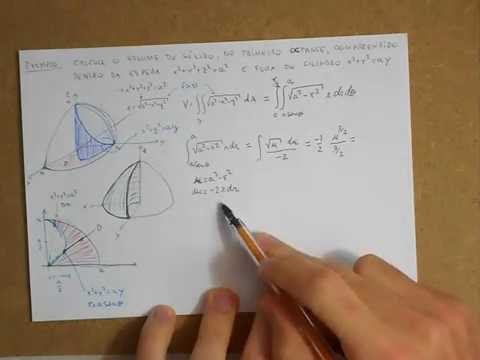 EXEMPLO: CALCULE O VOLUME DO SÓLIDO, NO PRIMEIRO OCTANTE, COMPREENDIDO
DENTRO DA ESFERA x²+y²+z²=a² E FORA DO CILINDRO x²+y²=ay
x²+y²+z²=a²
z=√a²-x²-y²
x²+y²=ay
V=∬√a²-x²-y² dA = ∬√a²-r² r dr dθ
∫√a²-r² r dr = ∫ √u du / -2 = -1/2 u^3/2 / 3/2 =
u=a²-r²
du=-2r dr
x²+y²=a²
r=a
x²+y²=ay
r=a senθ